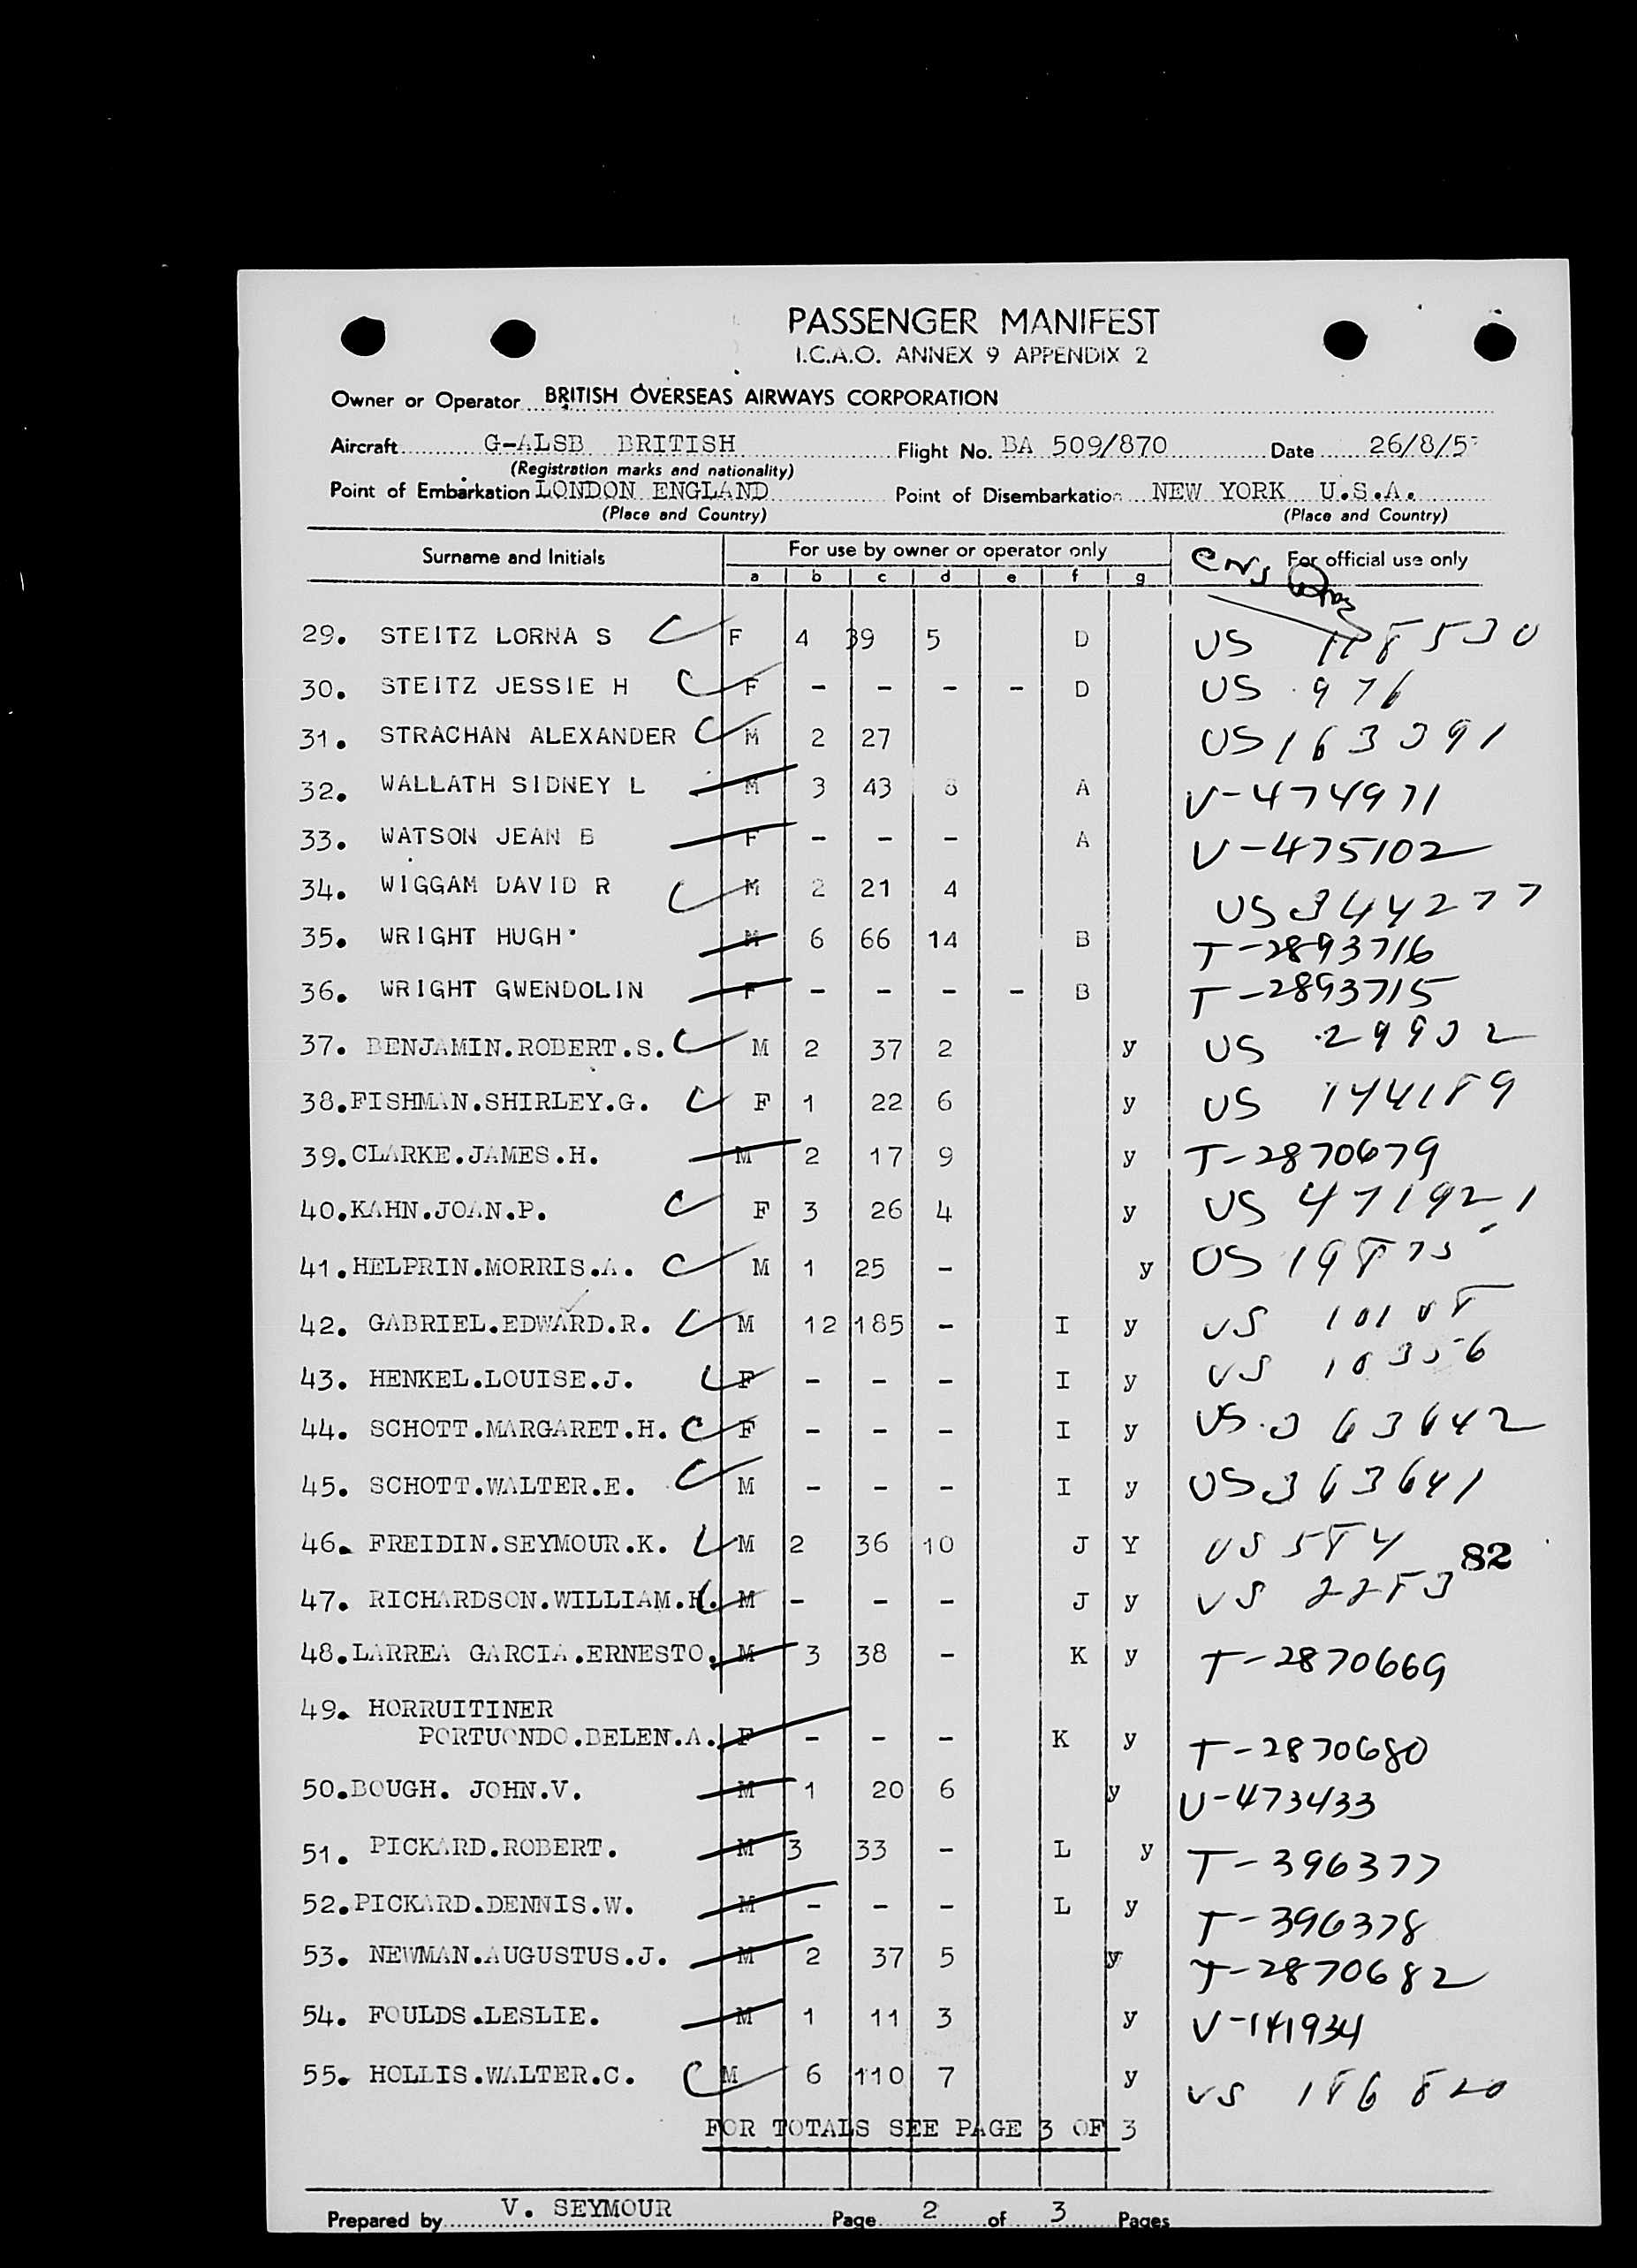 PASSENGER MANIFEST
I.C.A.O. ANNEX 9 APPENDIX 2
Owner or Operator BRITISH OVERSEAS AIRWAYS CORPORATION
Aircraft G-ALSB BRITISH Flight No. BA 509/870 Date 26/8/5
(Registration marks and nationality)
Point of Embarkation LONDON ENGLAND Point of Disembarkation NEW YORK U.S.A.
(Place and Country) (Place and Country)
Surname and Initials For use by owner or operator only For official use only
a b c d e f g
29. STEITZ LORNA S C F 4 39 5 D US
30. STEITZ JESSIE H C F - - - - D US 976
31. STRACHAN ALEXANDER C M 2 27 US 163391
32. WALLATH SIDNEY L M 3 43 8 A V-474971
33. WATSON JEAN B F - - - A V-475102
34. WIGGAM DAVID R C M 2 21 4 US 344277
35. WRIGHT HUGH M 6 66 14 B T-2893716
36. WRIGHT GWENDOLIN F - - - - B T-2893715
37. BENJAMIN.ROBERT.S. C M 2 37 2 y US 29932
38.FISHMAN.SHIRLEY.G. C F 1 22 6 y US 144189
39.CLARKE.JAMES.H. M 2 17 9 y T-2870679
40.KAHN.JOAN.P. C F 3 26 4 y US 471921
41.HELPRIN.MORRIS.A. C M 1 25 - y US 19875
42. GABRIEL.EDWARD.R. C M 12 185 - I y US 10108
43. HENKEL.LOUISE.J. C F - - - I y US 10356
44. SCHOTT.MARGARET.H. C F - - - I y US 363642
45. SCHOTT.WALTER.E. C M - - - I y US 363641
46. FREIDIN.SEYMOUR.K. C M 2 36 10 J Y US 584
82
47. RICHARDSON.WILLIAM.H. C M - - - J y US 2283
48.LARREA GARCIA.ERNESTO. M 3 38 - K y T-2870669
49. HORRUITINER
PORTUONDO.BELEN.A. F - - - K y T-2870680
50.BOUGH. JOHN.V. M 1 20 6 y V-473433
51. PICKARD.ROBERT. M 3 33 - L y T-396377
52.PICKARD.DENNIS.W. M - - - L y T-396378
53. NEWMAN.AUGUSTUS.J. M 2 37 5 y T-2870682
54. FOULDS.LESLIE. M 1 11 3 y V-141934
55. HOLLIS.WALTER.C. C M 6 110 7 y US 186820
FOR TOTALS SEE PAGE 3 OF 3
Prepared by V. SEYMOUR Page 2 of 3 Pages